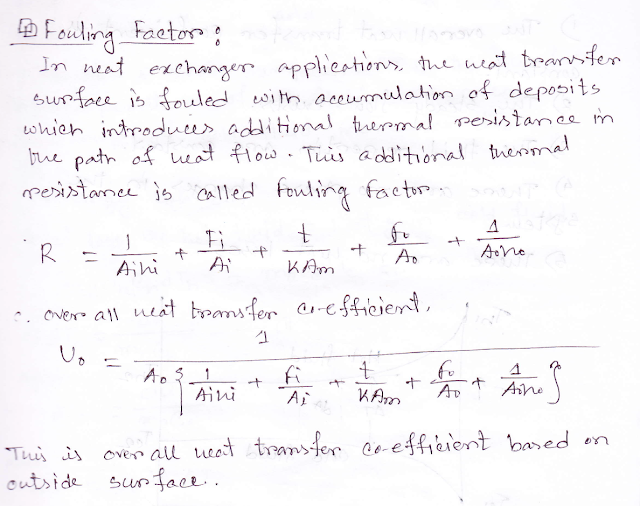 Fouling Factor :
In heat exchanger applications, the heat transfer
surface is fouled with accumulation of deposits
which introduces additional thermal resistance in
the path of heat flow. This additional thermal
resistance is called fouling factor.
R = 1/Aihi + Fi/Ai + t/KAm + fo/Ao + 1/Aoho
∴ over all heat transfer co-efficient,
Uo = 1/Ao{1/Aihi + fi/Ai + t/KAm + fo/Ao + 1/Aoho}
This is over all heat transfer co-efficient based on
outside surface..